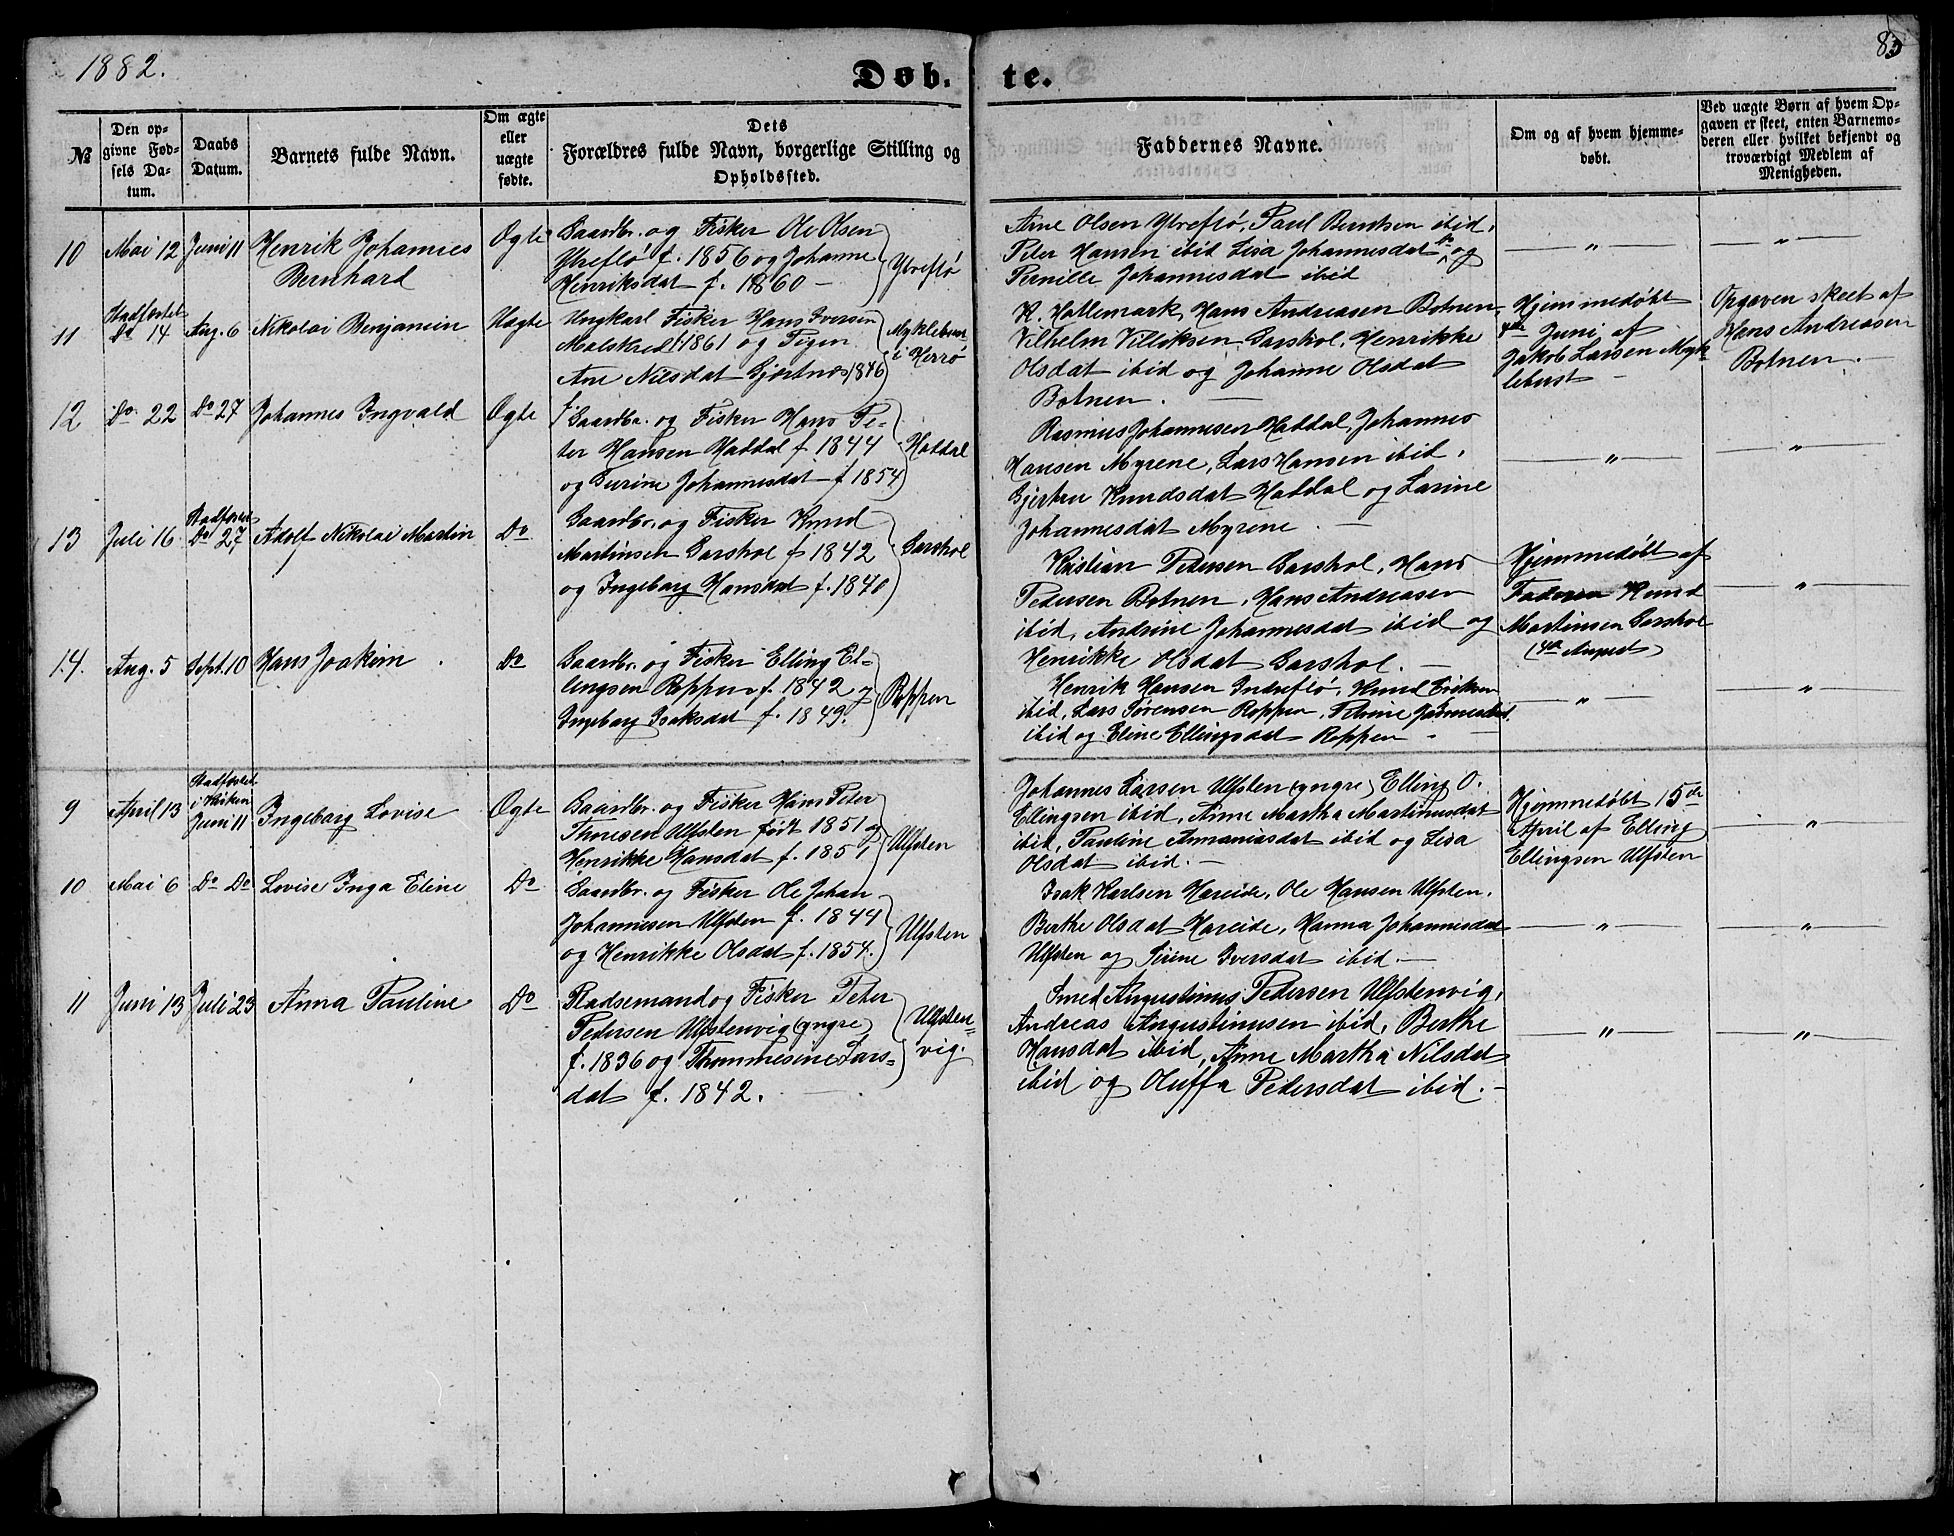 1882.
Døb. te.
83
№
Den opgivne Fødsels Datum.
Daabs Datum.
Barnets fulde Navn.
Om ægte eller uægte fødte.
Dets Forældres fulde Navn, borgerlige Stilling og Opholdssted.
Faddernes Navne.
Om og af hvem hjemmedøbt.
Ved uægte Børn af hvem Opgaven er skeet, enten Barnemoderen eller hvilket bekjendt og troværdigt Medlem af Menigheden.
10 Mai 12 Juni 11 Henrik Johannes
Bernhard
Ægte
Gaardbr. og Fisker Ole Olsen
Ytreflø f. 1856 og Johanne
Henriksdat f. 1860 —
Ytreflø
Arne Olsen Ytreflø, Paul Berntsen ibid,
Peter Hansen ibid Lisa Johannesdat og
Pernille Johannesdat ibid
— " —
— " —
11 Do 14 Stadfæstet Aug. 6 Nikolai Benjamin
Uægte
Ungkarl Fisker Hans Iversen
Molskred f 1861 og Pigen
Ane Nilsdat Gjertnes 1846
Myklebust
i Herrø
K. Hollemark, Hans Andreasen Botnen,
Vilhelm Villiksen Garshol, Henrikke
Olsdat ibid og Johanne Olsdat
Botnen. —
Hjemmedøbt
Juni af
Jakob Larsen Myk-
lebust —
Opgaven skeet af
Hans Andreasen
Botnen. —
12 Do. 22 Do 27 Johannes Ingvald
Ægte
Gaardbr. og Fisker Hans Pe-
ter Hansen Haddal f 1844
og Gurine Johannesdat f 1854
Haddal
Rasmus Johannesen Haddal, Johannes
Hansen Myrene, Lars Hansen ibid,
Gjertru Knudsdat Haddal og Larine
Johannesdat Myrene. —
— " —
— " —
13 Juli 16 Stadfæstet Do 27 Adolf Nikolai Martin
Do
Gaardbr. og Fisker Knud
Martinsen Garshol f 1842
og Ingeborg Hansdat f. 1840
Garshol
Kristian Pedersen Garshol, Hans
Pedersen Botnen, Hans Andreasen
ibid, Andrine Johannesdat ibid og
Henrikke Olsdat Garshol. —
Hjemmedøbt af
Faderen Knud
Martinsen Garshol
(4de August)
— " —
14. Aug. 5 Sept. 10 Hans Joakim
Do
Gaardbr. og Fisker Elling El-
lingsen Roppen f. 1842 og
Ingeborg Isaksdat f. 1849.
Roppen
Henrik Hansen Indreflø, Knud Eriksen
ibid, Lars Sørensen Roppen,
ibid og Eline Ellingsdat Roppen —
— " —
— " —
9 April 13 Stadfæstet
i Kirken
Juni 11
Ingeborg Lovise
Ægte
Gaardbr. og Fisker Hans Peter
Thoresen Ulfsten født 1851 og
Henrikke Hansdat f. 1851
Ulfsten
Johannes Larsen Ulfsten (yngre) Elling O.
Ellingsen ibid, Anne Martha Martinusdat
ibid, Pauline Ananiasdat ibid og Lisa
Olsdat ibid. —
Hjemmedøbt 15de
April af Elling
Ellingsen Ulfsten
— " —
10 Mai 6 Do Do Lovise Inga Eline
Do
Gaardbr. og Fisker Ole Johan
Johannesen Ulfsten f. 1844
og Henrikke Olsdat f. 1854.
Ulfsten
Isak Karlsen Hareide, Ole Hansen Ulfsten,
Berthe Olsdat Hareide, Hanna Johannesdat
Ulfsten og Sirine Iversdat ibid. —
— " —
— " —
11 Juni 13 Juli 23 Anna Pauline
Do
Stadsemand og Fisker Peter
Pedersen Ulfstenvig (yngre)
f. 1836 og Thommesine Lars-
dat f. 1842. —
Ulfsten-
vig.
Smed Augustinus Pedersen Ulfstenvig,
Andreas Augustinusen ibid, Berthe
Hansdat ibid, Anne Martha Nilsdat
ibid og Oluffa Pedersdat ibid. —
— " —
— " —